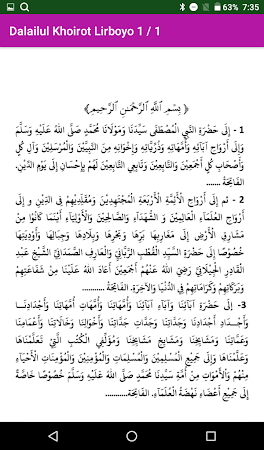 63% 7:35
Dalailul Khoirot Lirboyo 1 / 1
﴿ بِسْمِ اللَّهِ الرَّحْمَنِ الرَّحِيمِ ﴾
1 - إِلَى حَضْرَةِ النَّبِيِّ الْمُصْطَفَى سَيِّدِنَا وَمَوْلَانَا مُحَمَّدٍ صَلَّى اللهُ عَلَيْهِ وَسَلَّمَ
وَإِلَى أَرْوَاحِ آبَائِهِ وَأُمَّهَاتِهِ وَذُرِّيَّاتِهِ وَإِخْوَانِهِ مِنَ النَّبِيِّيْنَ وَالْمُرْسَلِيْنَ وَآلِ كُلٍّ
وَأَصْحَابِ كُلٍّ أَجْمَعِيْنَ وَالتَّابِعِيْنَ وَتَابِعِي التَّابِعِيْنَ لَهُمْ بِإِحْسَانٍ إِلَى يَوْمِ الدِّيْنِ.
الْفَاتِحَةُ ........
2 - ثم إِلَى أَرْوَاحِ الْأَئِمَّةِ الْأَرْبَعَةِ الْمُجْتَهِدِيْنَ وَمُقَلِّدِيْهِمْ فِي الدِّيْنِ و إِلَى
أَرْوَاحِ الْعُلَمَاءِ الْعَامِلِيْنَ وَ الشُّهَدَاءِ وَالصَّالِحِيْنَ وَالْأَوْلِيَاءِ أَيْنَمَا كَانُوْا مِنْ
مَشَارِقِ الْأَرْضِ إِلَى مَغَارِبِهَا بَرِّهَا وَبَحْرِهَا وَبِلَادِهَا وَجِبَالِهَا وَأَوْدِيَتِهَا
خُصُوْصًا إِلَى حَضْرَةِ السَّيِّدِ الْقُطْبِ الرَّبَّانِي وَالْعَارِفِ الصَّمَدَانِي الشَّيْخِ عَبْدِ
الْقَادِرِ الْجِيْلَانِي رَضِيَ اللهُ عَنْهُمْ أَجْمَعِيْنَ أَعَادَ اللهُ عَلَيْنَا مِنْ شَفَاعَتِهِمْ
وَبَرَكَاتِهِمْ وَكَرَامَاتِهِمْ فِي الدُّنْيَا وَالْآخِرَةِ. الْفَاتِحَةُ ........
3- إِلَى حَضْرَةِ آبَائِنَا وَآبَاءِ آبَائِنَا وَأُمَّهَاتِنَا وَأُمَّهَاتِ أُمَّهَاتِنَا وَأَجْدَادِنَا
وَأَجْدَادِ أَجْدَادِنَا وَجَدَّاتِنَا وَجَدَّاتِ جَدَّاتِنَا وَأَخْوَالِنَا وَخَالَاتِنَا وَأَعْمَامِنَا
وَعَمَّاتِنَا وَمَشَايِخِنَا وَمَشَايِخِ مَشَايِخِنَا وَمُؤَلِّفِي الْكُتُبِ الَّتِي تَعَلَّمْنَاهَا
وَعَلَّمْنَاهَا وَإِلَى جَمِيْعِ الْمُسْلِمِيْنَ وَالْمُسْلِمَاتِ وَالْمُؤْمِنِيْنَ وَالْمُؤْمِنَاتِ الْأَحْيَاءِ
مِنْهُمْ وَالْأَمْوَاتِ مِنْ أُمَّةِ سَيِّدِنَا مُحَمَّدٍ صَلَّى اللهُ عَلَيْهِ وَسَلَّمَ خُصُوْصًا خَاصَّةً
إِلَى جَمِيْعِ أَعْضَاءِ نَهْضَةِ الْعُلَمَاءِ. الفَاتِحَة.............